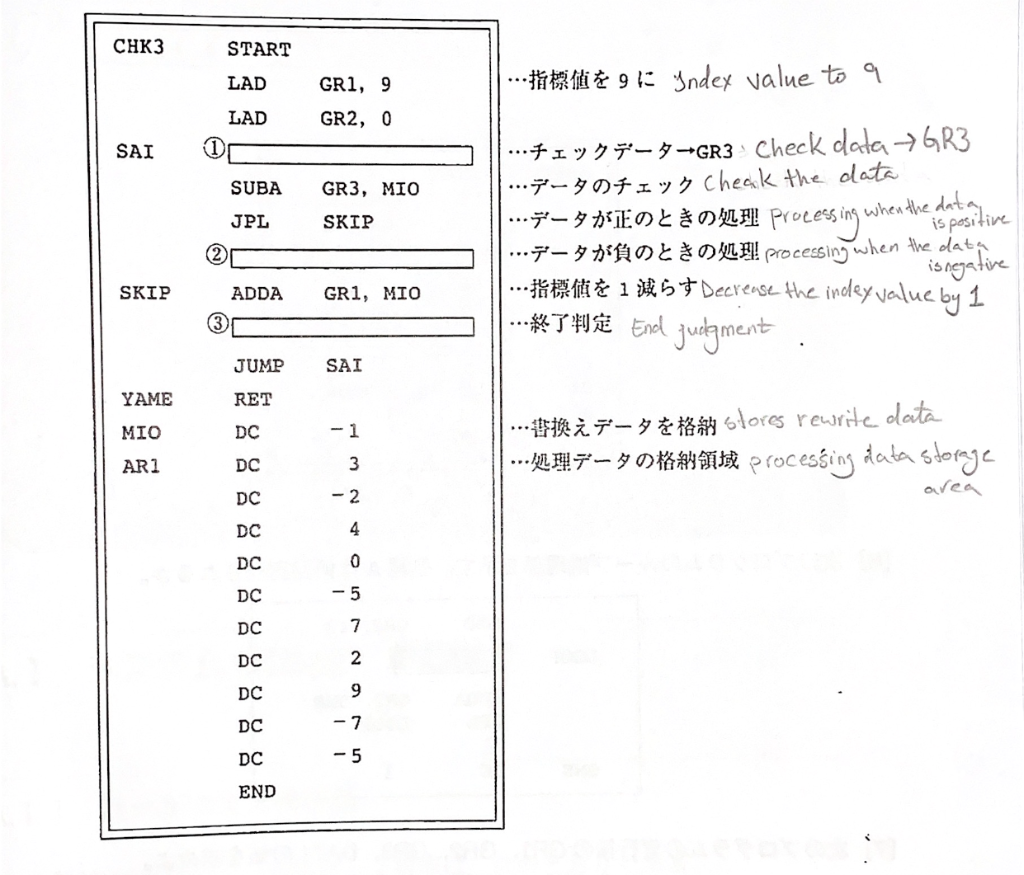 CHK3 START
LAD GR1, 9 …指標値を 9 に Index value to 9
LAD GR2, 0
SAI ① …チェックデータ→GR3 Check data → GR3
SUBA GR3, MIO …データのチェック Check the data
JPL SKIP …データが正のときの処理 Processing when the data is positive
② …データが負のときの処理 processing when the data is negative
SKIP ADDA GR1, MIO …指標値を 1 減らす Decrease the index value by 1
③ …終了判定 End judgment
JUMP SAI
YAME RET
MIO DC -1 …書換えデータを格納 stores rewrite data
AR1 DC 3 …処理データの格納領域 processing data storage area
DC -2
DC 4
DC 0
DC -5
DC 7
DC 2
DC 9
DC -7
DC -5
END